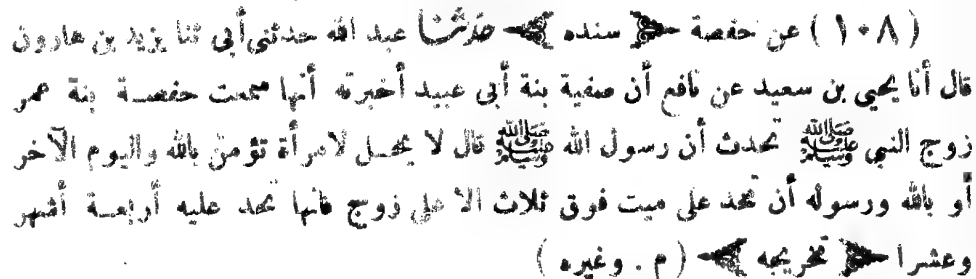 (١٠٨) عن حفصة ﴿ سنده ﴾ حدثنا عبد الله حدثني أبي ثنا يزيد بن هارون
قال أنا يحيى بن سعيد عن نافع أن صفية بنة أبي عبيد أخبرته أنها سمعت حفصة بنة عمر
زوج النبي ﷺ تحدث أن رسول الله ﷺ قال لا يحل لامرأة تؤمن بالله واليوم الآخر
أو بالله ورسوله أن تحد على ميت فوق ثلاث الا على زوج فانها تحد عليه أربعة أشهر
وعشرا ﴿ تخريجه ﴾ (م . وغيره)